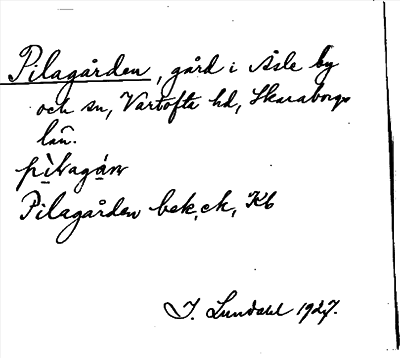 Pilagården, gård i Åsle by
och sn, Vartofta hd, Skaraborgs
län.
pilagán
Pilagården bek, ek, Kb
J. Lundahl 1927.